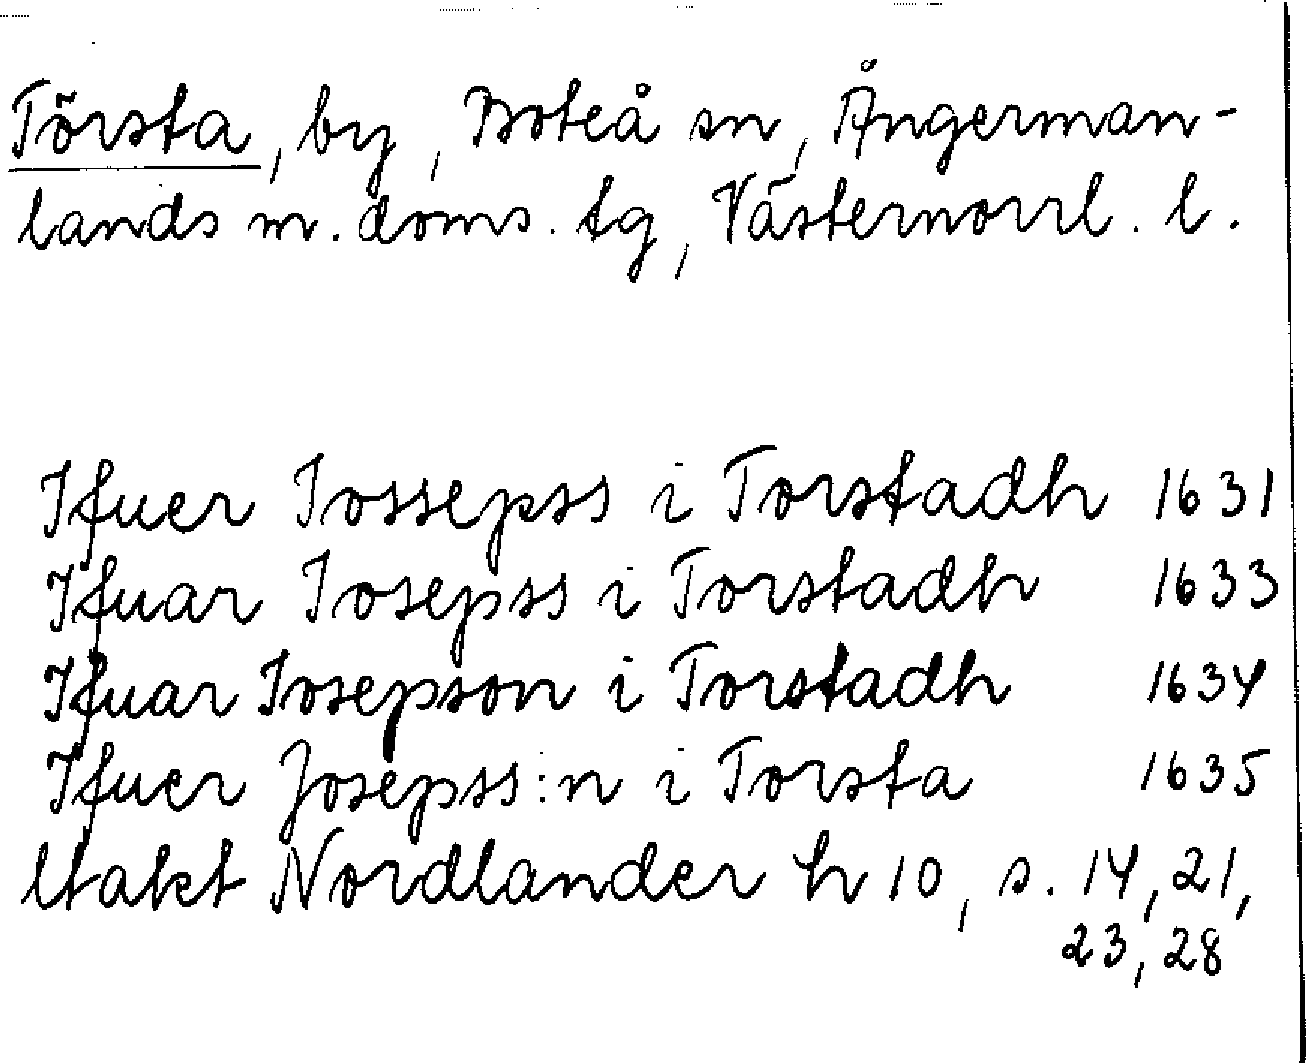 Törsta, by, Boteå sn, Ångerman-
lands m. doms. tg, Västernorrl. l.
Ifuer Iossepss i Torstadh 1631
Ifuar Iosepss i Torstadh 1633
Ifuar Iosepson i Torstadh 1634
Ifuer Josepss:n i Torsta 1635
ltakt Nordlander h 10, s. 14, 21,
23, 28